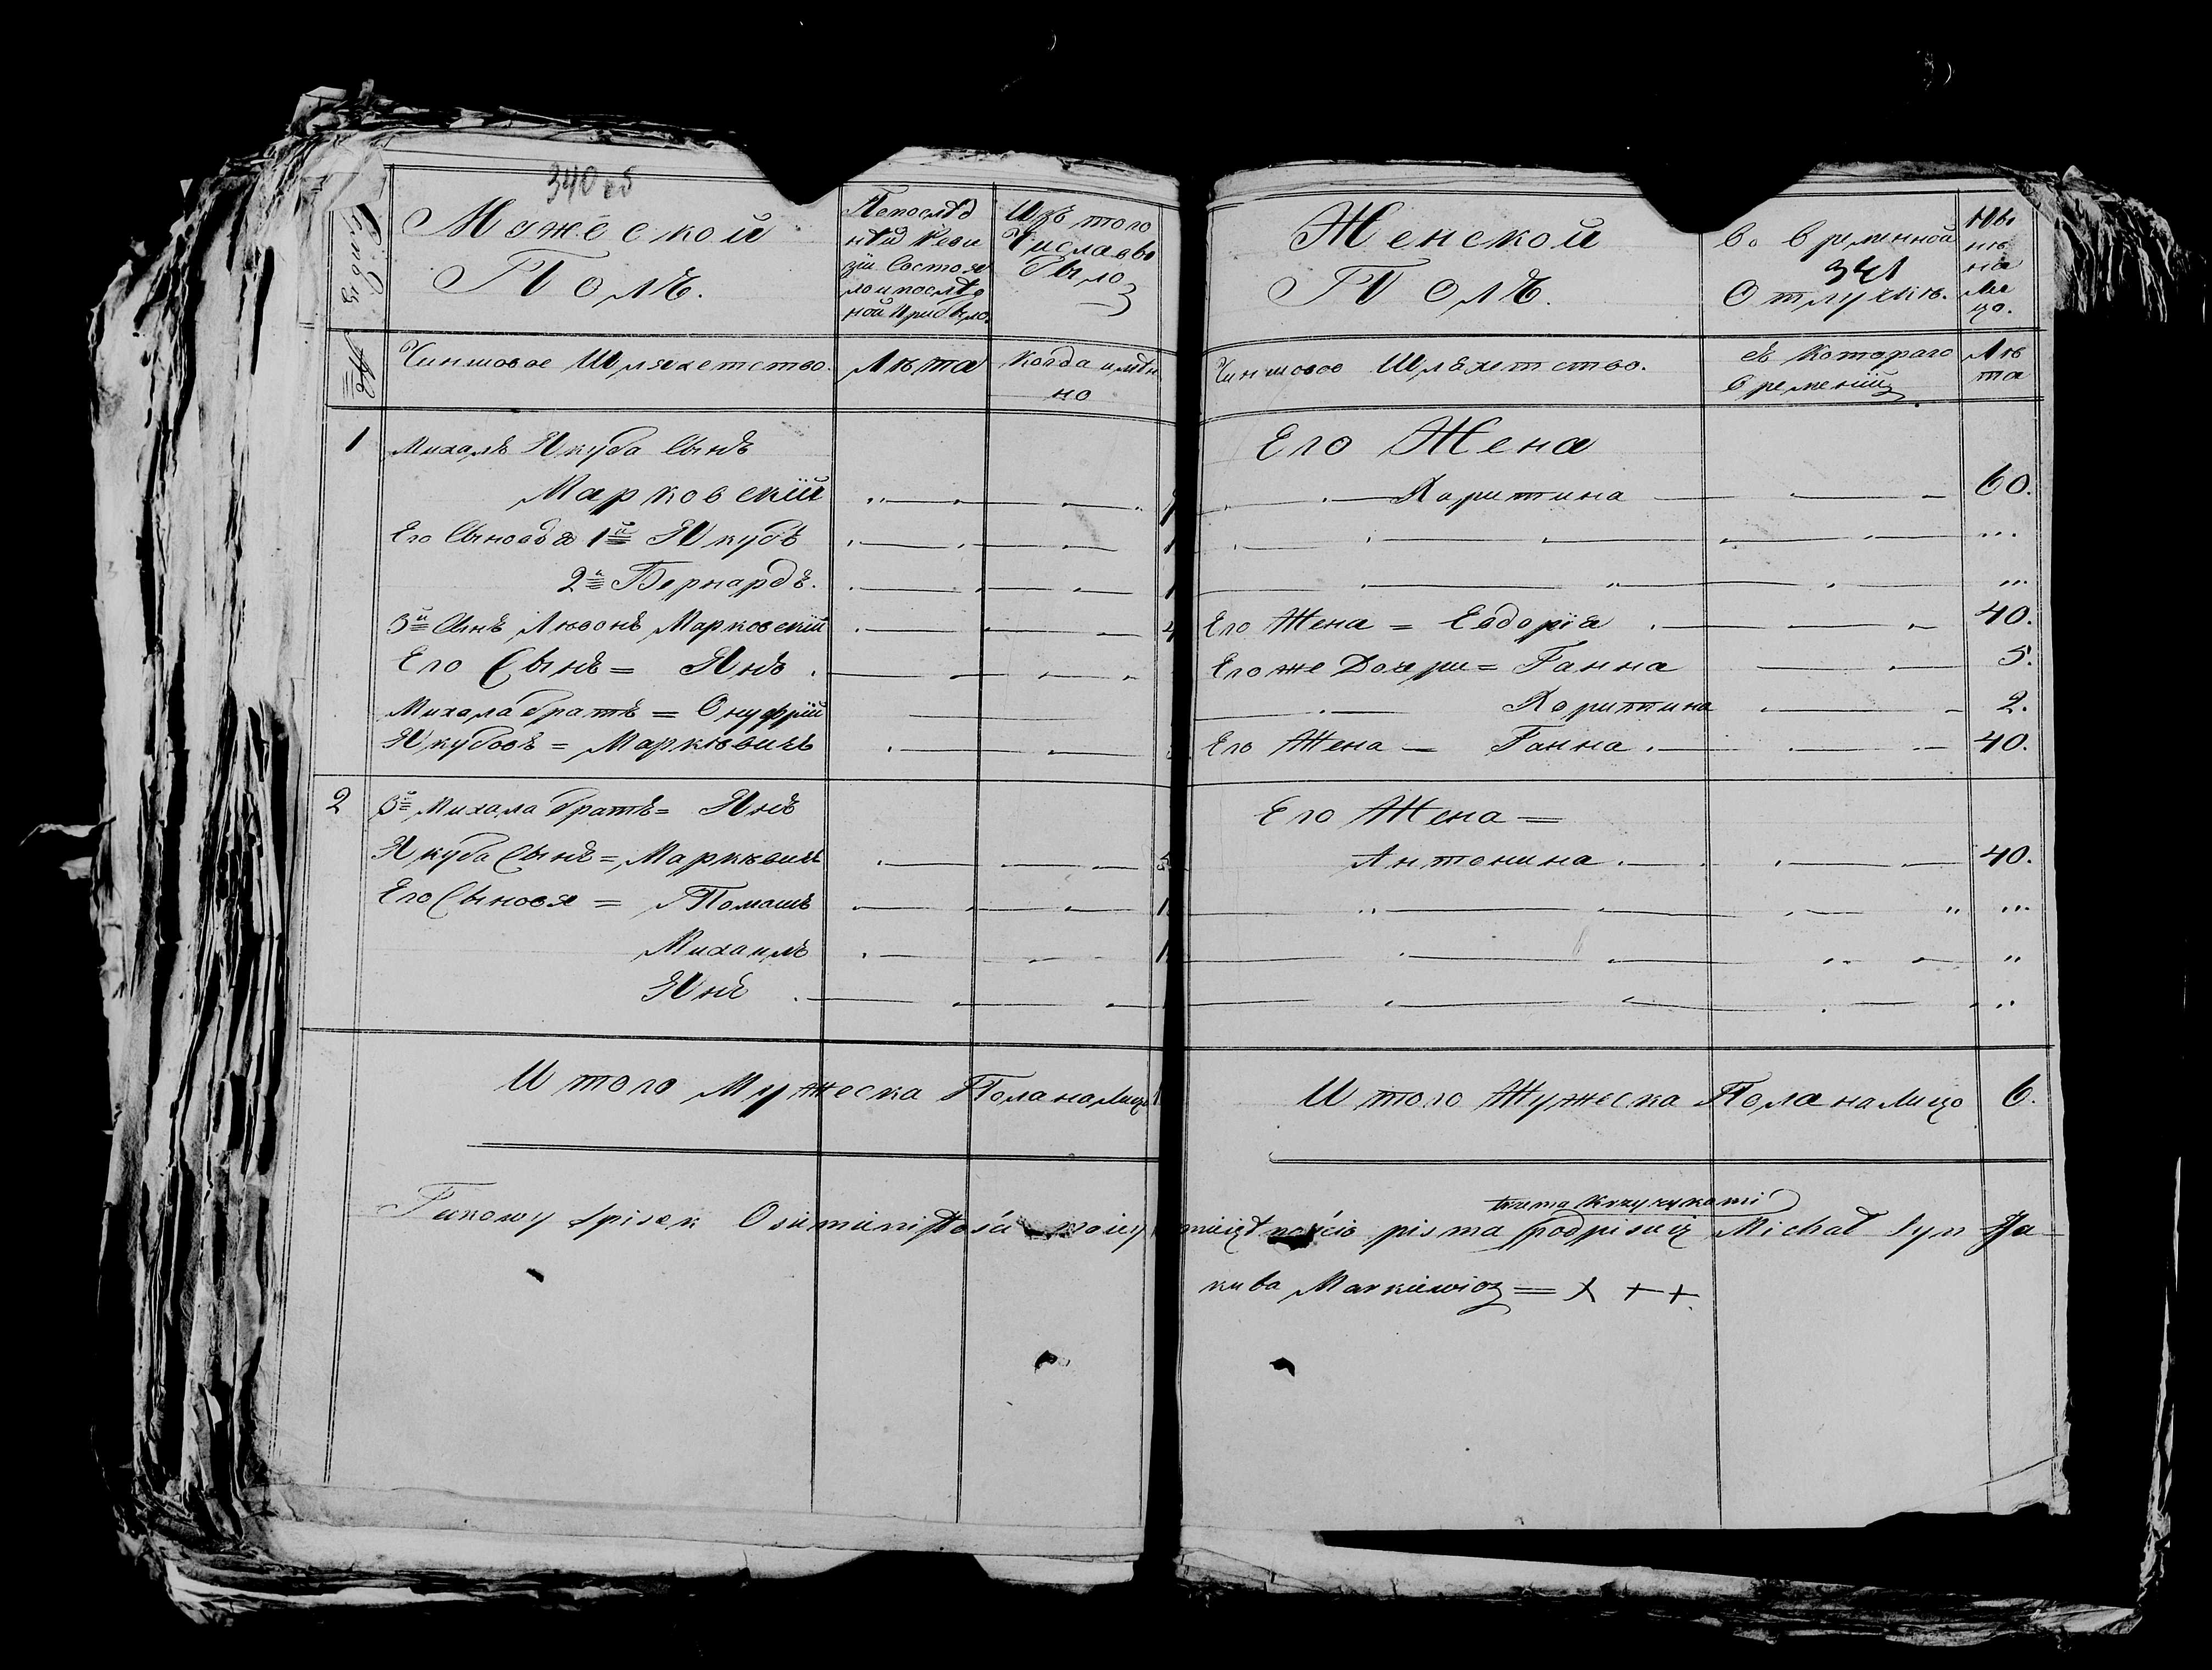 340 об
Мужеской
Полъ.
Изъ того
Числа вы
было
Чиншовое Шляхетство.
Лѣта
когда имѣн
но
1
Михалъ Якуба Сынъ
Марковскій
Его Сыновья 1й Якубъ
2й Бернардъ.
3й Сынъ Левонъ Марковскій
Его Сынъ = Янъ
Михала братъ = Онуфрій
Якубовъ = Маркевичъ
2
3й Михала братъ = Янъ
Якуба Сынъ = Маркевичъ
Его Сыновя = Томашъ
Михаилъ
Янъ
И того Мужеска Пола на Лицо
Женской
Полъ.
Во временной
341
Отлучкѣ.
Ны
нѣ
на
ли
цо.
Чиншовое Шляхетство.
съ Котораго
времени
Лѣ
та
Его Жена
Харитина 60.
Его Жена = Евдокія 40.
Его же Дочри = Ганна 5.
Харитина 2.
Его Жена — Ганна 40.
Его Жена =
Антонина 40.
И того Жужеска Пола на Лицо 6.
trzema Krzyżykami
Takowy Spisek O nieumiejętności pisma podpisuię Michał Syn Ja-
kuba Markiewicz = + + +